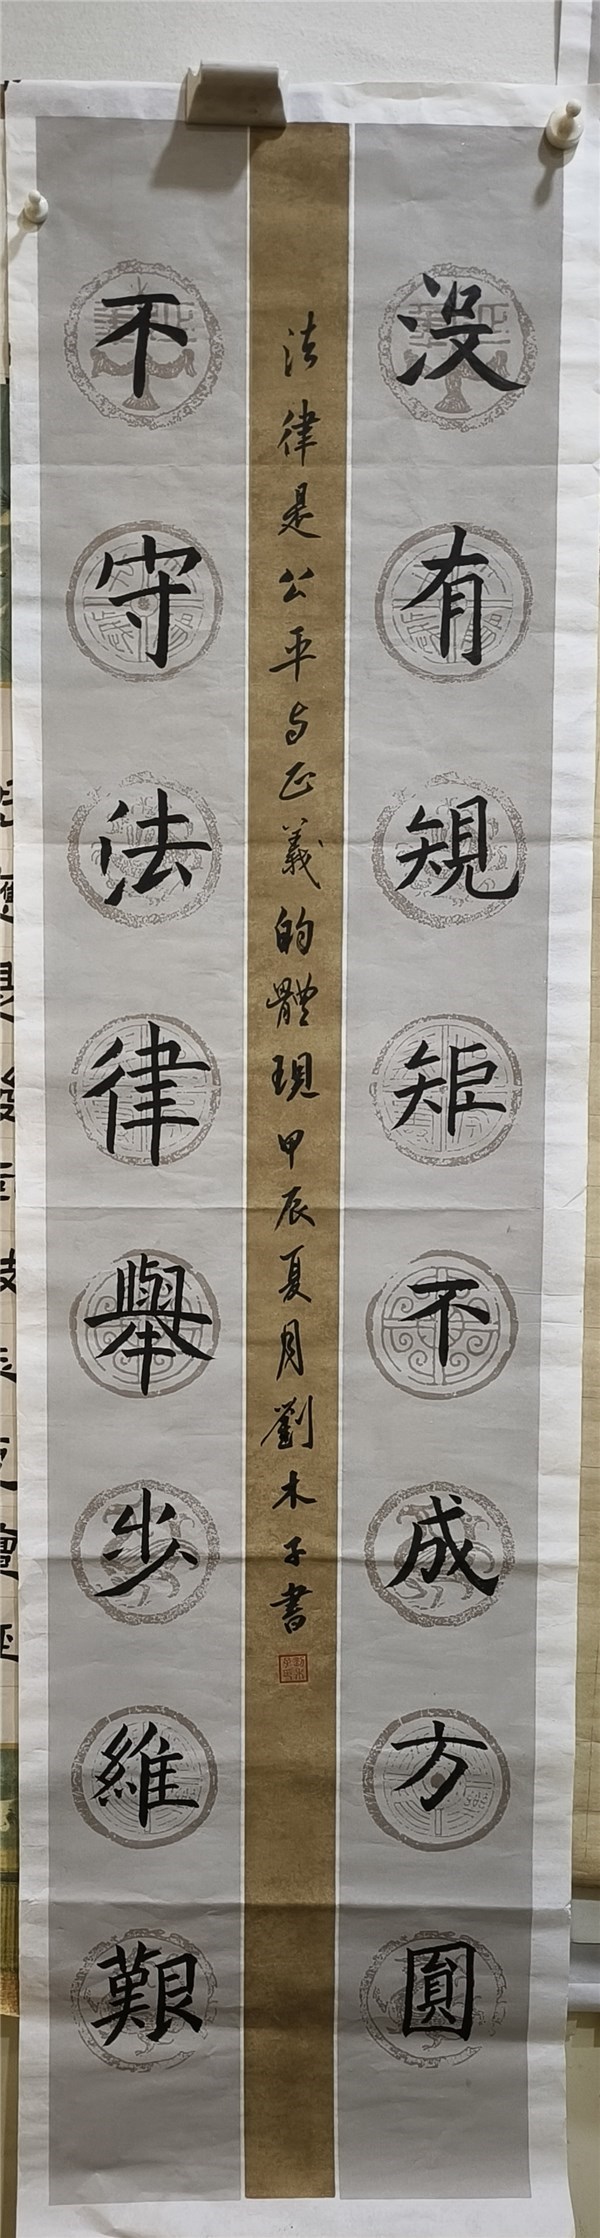 没有規矩不成方圓
法律是公平与正義的體現甲辰夏月劉木子書
不守法律舉步維艱